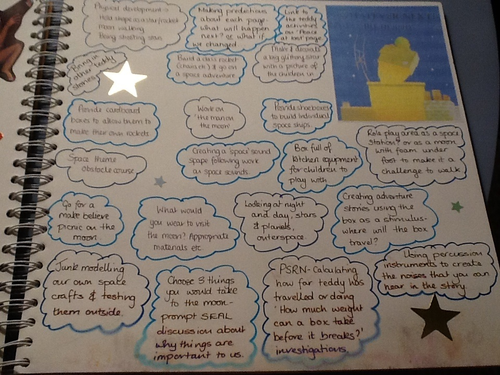 Physical development -
Making predictions
about each page.
what will happen
next? or what if
we changed
Link to
the teddy
Bring in
other teddy
stories
Build a class rocket
& go on
a space adventure
with a picture of
the children in
Provide cardboard
boxes to allow them to
make their own rockets
Work on
'the man on the
moon'
Provide shoeboxes
to build individual
space ships.
Role play area as a space
station? or as a moon
with foam under
foot to make it a
challenge to walk
Space theme
obstacle course
Creating a 'space' sound
scape following work
on space sounds
Box full of
kitchen equipment
for children to
play with
Go for a
make believe
picnic on the
moon.
What would
you wear to visit
the moon? Appropriate
materials etc
Looking at night
and day, stars
& planets,
outerspace
Creating adventure
stories using the
box as a stimulus-
where will the box
travel?
Junk modelling
our own space
crafts & testing
them outside.
Choose 3 things
you would take
to the moon-
prompt SEAL
discussion about
why things are
important to us.
PSRN - Calculating
how far teddy has
travelled or doing
'How much weight
can a box take
before it breaks?'
investigations
Using percussion
instruments to create
the noises that you can
hear in the story